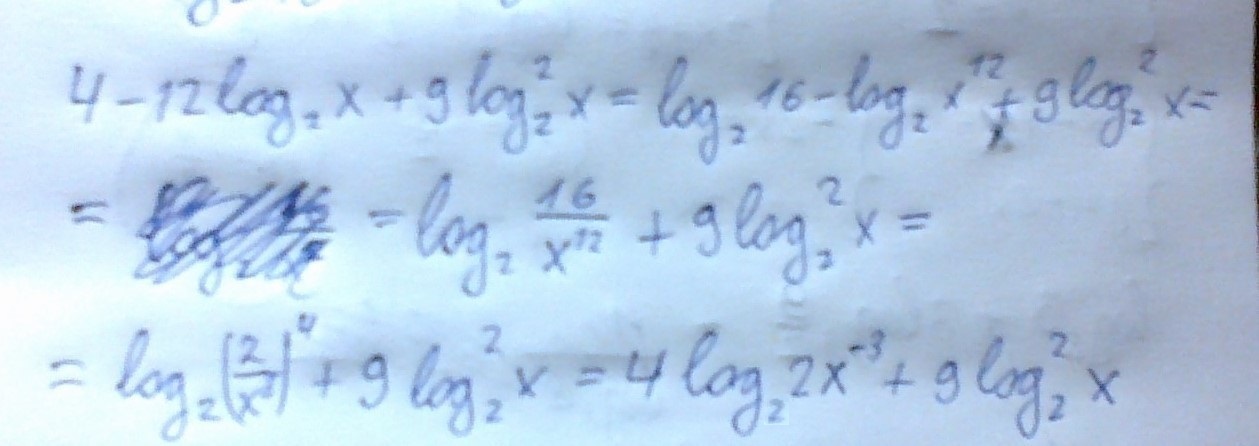 4 - 12 log₂ x + 9 log₂² x = log₂ 16 - log₂ x¹² + 9 log₂² x =
= = log₂ 16/x¹² + 9 log₂² x =
= log₂ (2/x³)⁴ + 9 log₂² x = 4 log₂ 2x⁻³ + 9 log₂² x